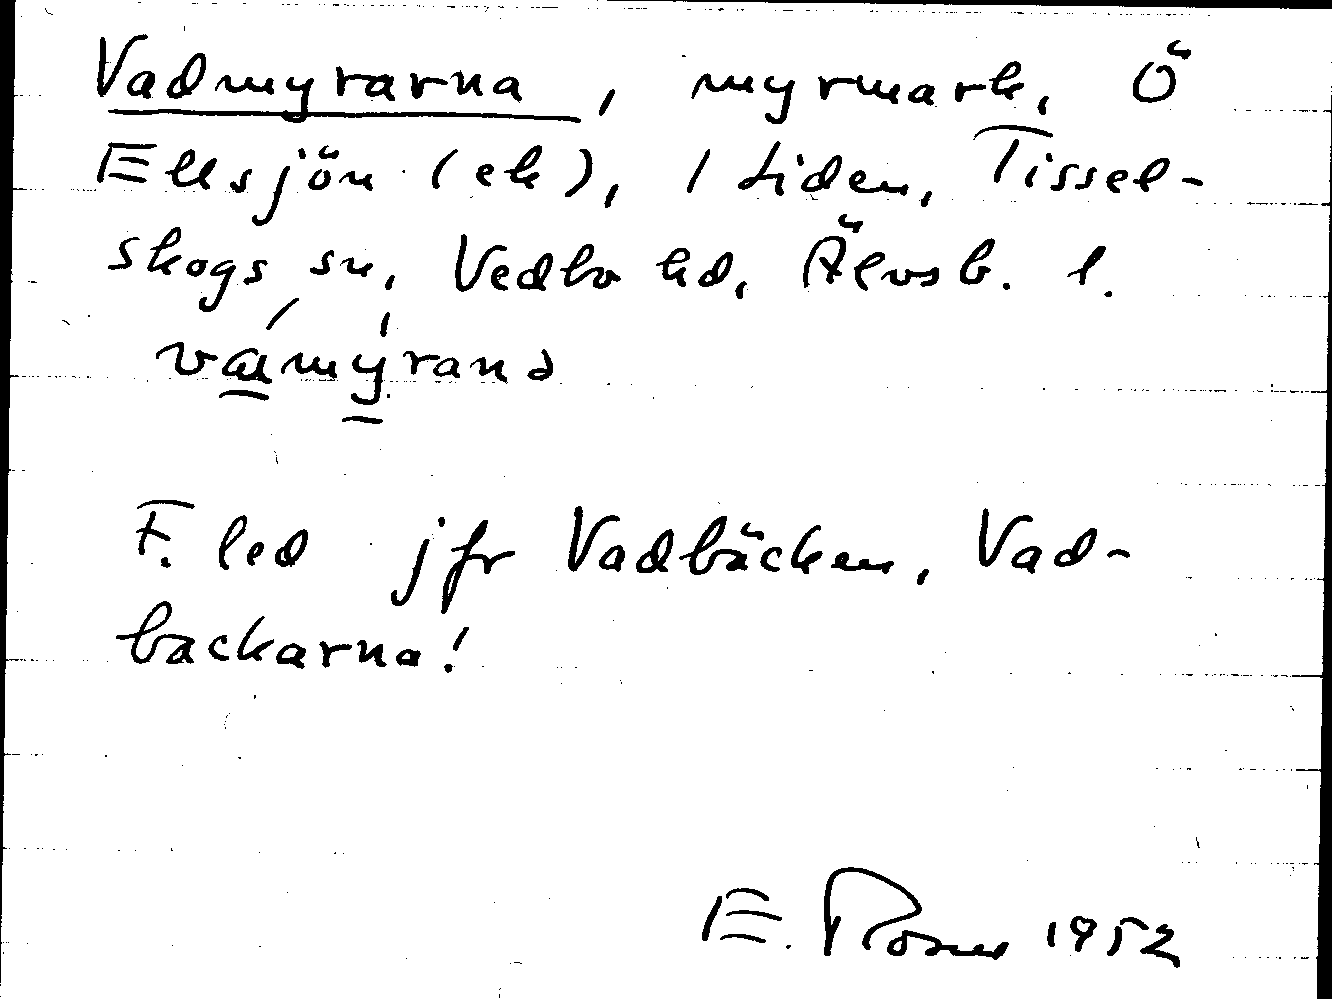 Vadmyrarna, myrmark, Ö
Ellsjön (ek), 1 Liden, Tissel-
skogs sn, Vedbo hd, Älvsb. l.
F. led jfr Vadbäcken, Vad-
backarna!
E. Rosn 1952